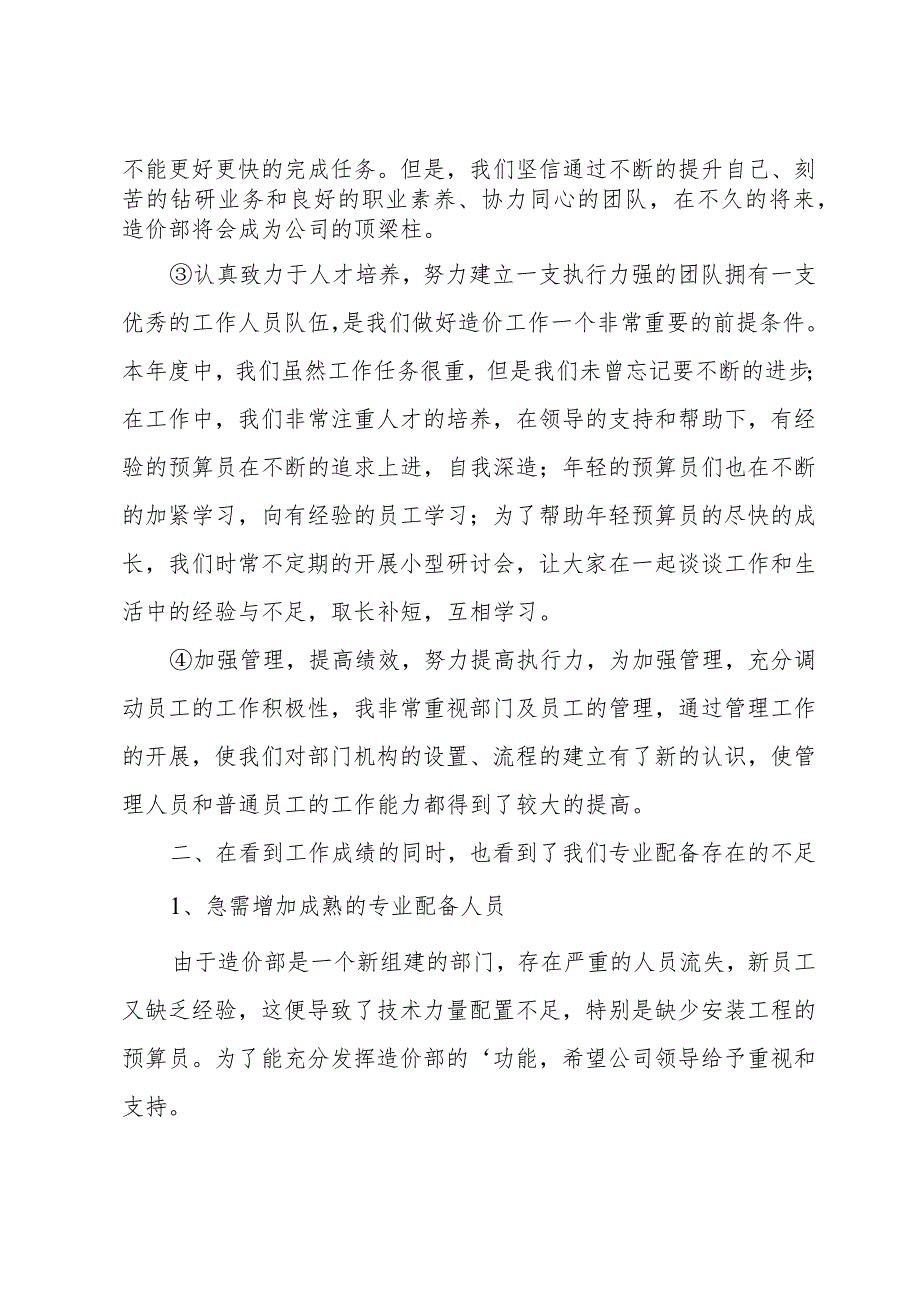 不能更好更快的完成任务。但是，我们坚信通过不断的提升自己、刻
苦的钻研业务和良好的职业素养、协力同心的团队，在不久的将来，
造价部将会成为公司的顶梁柱。
③认真致力于人才培养，努力建立一支执行力强的团队拥有一支
优秀的工作人员队伍，是我们做好造价工作一个非常重要的前提条件。
本年度中，我们虽然工作任务很重，但是我们未曾忘记要不断的进步；
在工作中，我们非常注重人才的培养，在领导的支持和帮助下，有经
验的预算员在不断的追求上进，自我深造；年轻的预算员们也在不断
的加紧学习，向有经验的员工学习；为了帮助年轻预算员的尽快的成
长，我们时常不定期的开展小型研讨会，让大家在一起谈谈工作和生
活中的经验与不足，取长补短，互相学习。
④加强管理，提高绩效，努力提高执行力，为加强管理，充分调
动员工的工作积极性，我非常重视部门及员工的管理，通过管理工作
的开展，使我们对部门机构的设置、流程的建立有了新的认识，使管
理人员和普通员工的工作能力都得到了较大的提高。
二、在看到工作成绩的同时，也看到了我们专业配备存在的不足
1、急需增加成熟的专业配备人员
由于造价部是一个新组建的部门，存在严重的人员流失，新员工
又缺乏经验，这便导致了技术力量配置不足，特别是缺少安装工程的
预算员。为了能充分发挥造价部的‘功能，希望公司领导给予重视和
支持。